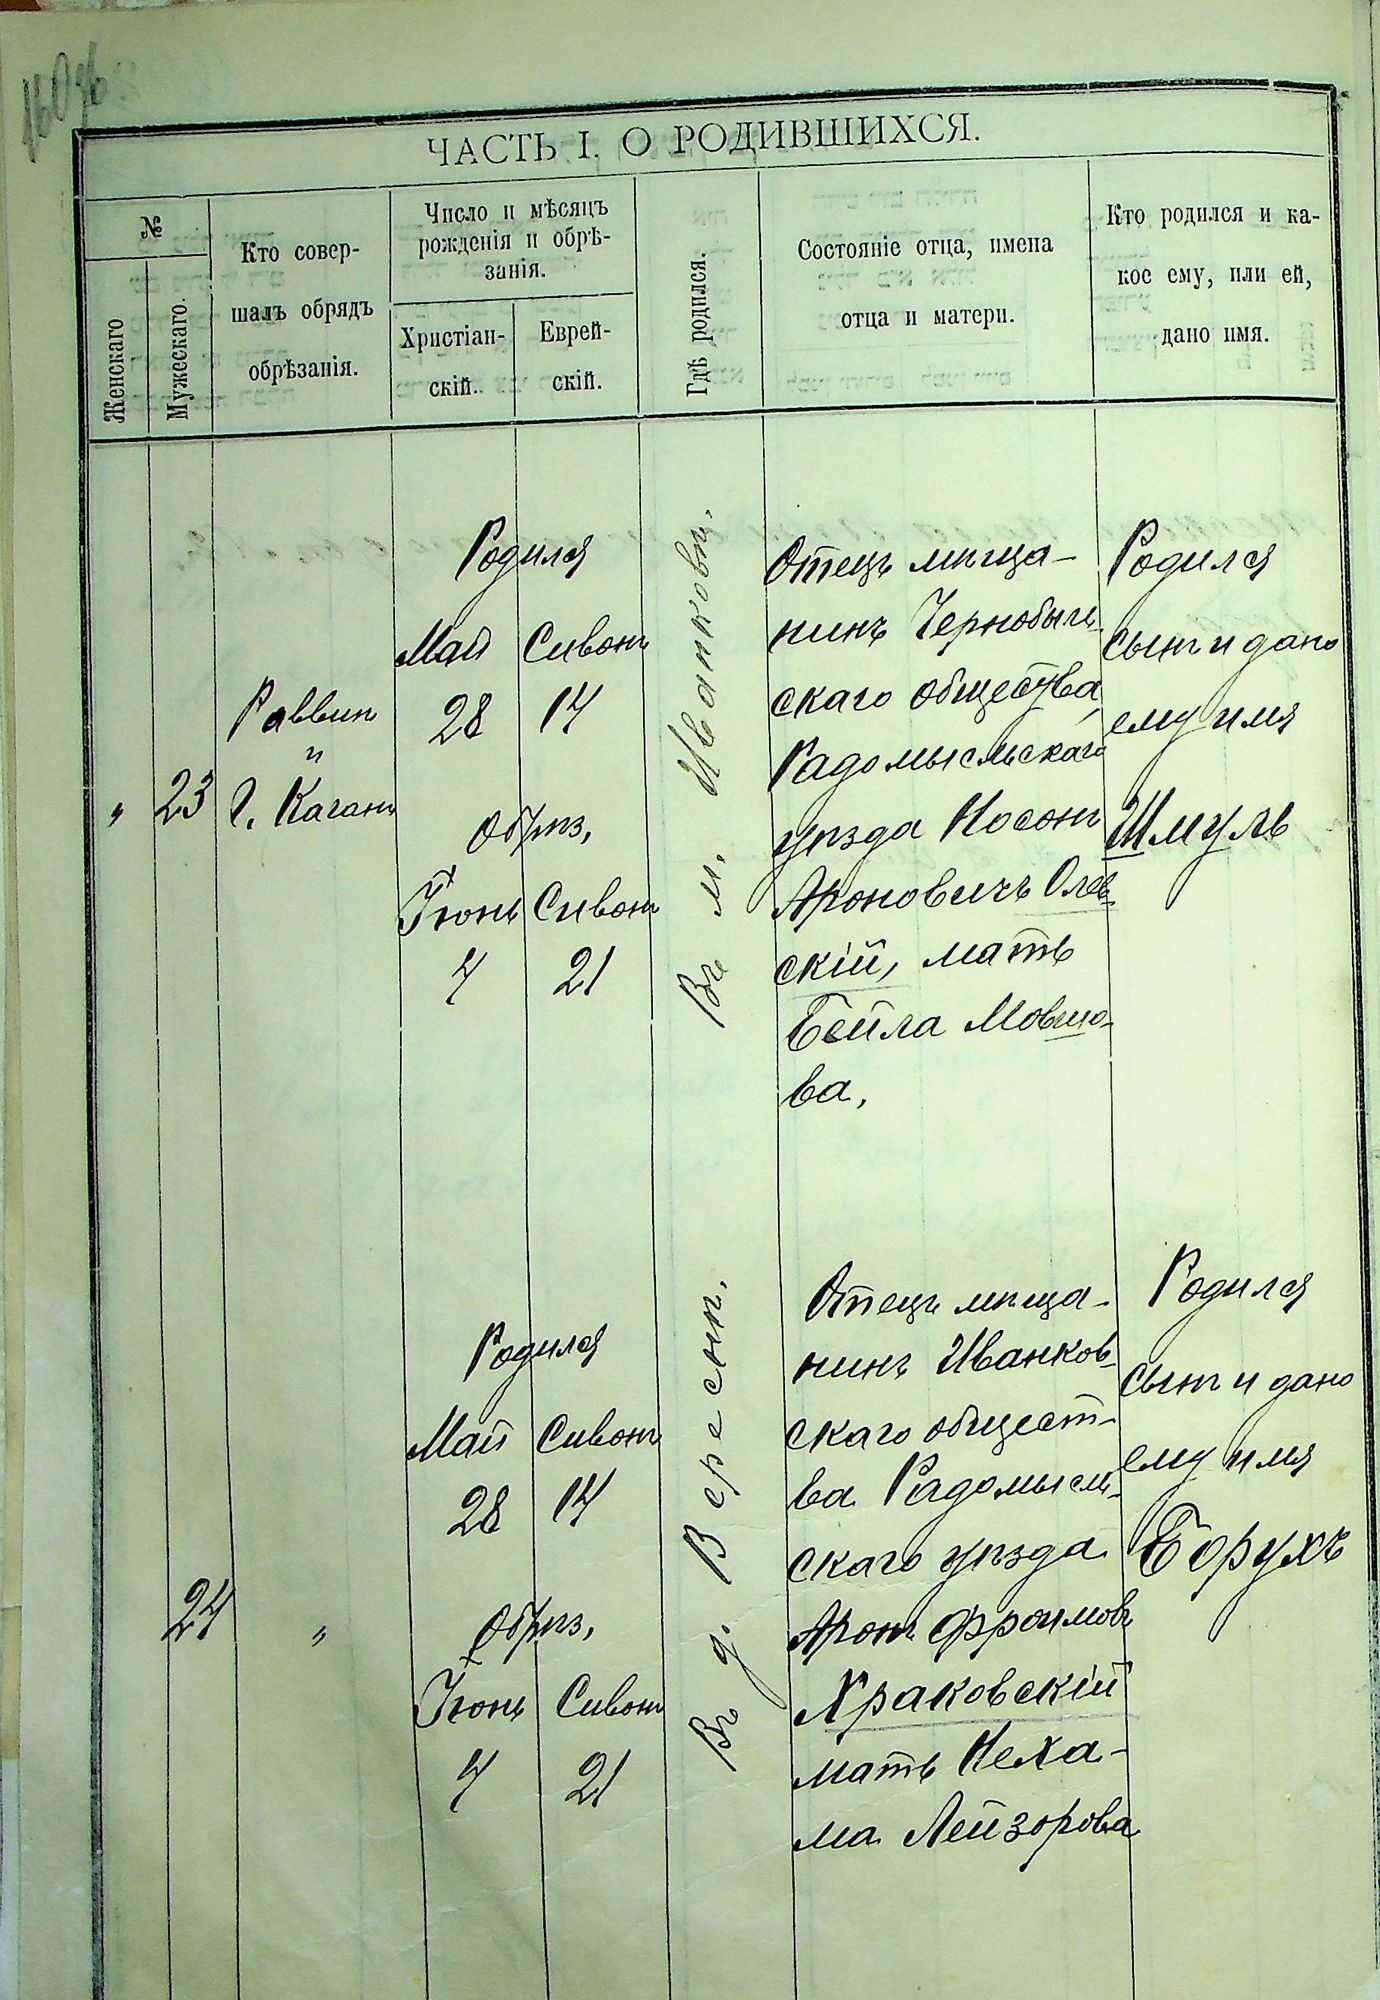 ЧАСТЬ I. О РОДИВШИХСЯ.
№
Женскаго
Мужескаго.
Кто совер-
шалъ обрядъ
обрѣзанія.
Число и мѣсяцъ
рожденія и обрѣ-
занія.
Христіан-
скій.
Еврей-
скій.
Гдѣ родился.
Состояніе отца, имена
отца и матери.
Кто родился и ка-
кое ему, или ей,
дано имя.
"
23
Раввин
"
Г. Каганъ
Родился
Май Сивонъ
28 17
Обрѣз.
Іюнь Сивонъ
4 21
Въ м. Иванковѣ.
Отецъ мѣща-
нинъ Чернобыль-
скаго общества
Радомысльскаго
уѣзда Носонъ
Ароновичъ Олев-
скій, мать
Бейла Мовшо-
ва.
Родился
сынъ и дано
ему имя
Шмуль
24
"
Родился
Май Сивонъ
28 17
Обрѣз.
Іюнь Сивонъ
4 21
Въ д. Вереснѣ.
Отецъ мѣща-
нинъ Иванков-
скаго общест-
ва Радомысл-
скаго уѣзда
Аронъ Фроимовъ
Храковскій
мать Неха-
ма Лейзорова
Родился
сынъ и дано
ему имя
Борухъ